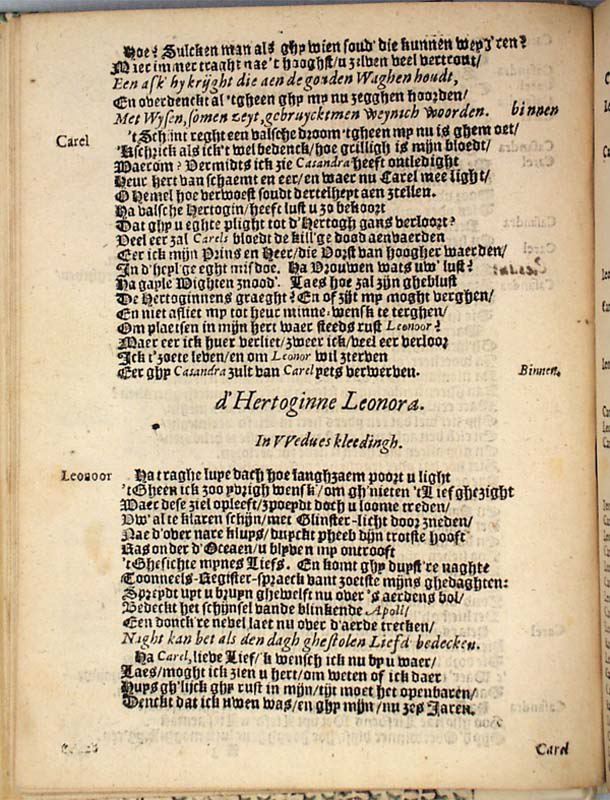 Hoe? Sulcken man als ghy wien soud' die kunnen weyg'ren?
Niet immer traght nae't hooghst/u zelven veel vertrout/
Een ask' hy krijght die aen de gouden Waghen houdt,
En overdenckt al 'tgheen ghy my nu zegghen hoorden/
Met Wysen, somen zeyt, gebruycktmen weynich woorden. binnen
Carel 't Schijnt reght een valsche droom 'tgheen my nu is ghemoet/
'Kschrick als ick't wel bedenck/hoe grilligh is mijn bloedt/
Waerom? Vermidts ick zie Casandra heeft ontledight
Heur hert van schaemt en eer/en waer nu Carel mee light/
O Hemel hoe verwoest soudt dertelheyt aen ztellen.
Ha valsche Hertogin/heeft lust u zo bekoort
Dat ghy u eghte plight tot d'Hertogh gans verloort?
Veel eer zal Carels bloedt de kill'ge dood aenvaerden
Eer ick mijn Prins en Heer/die Vorst van hoogher waerden/
In d'heyl'ge eght misdoe. Ha Vrouwen wats uw' lust?
Ha gayle Wighten znood'. Laes hoe zal zijn gheblust
De Hertoginnens graeght? En of zijt my moght verghen/
En niet afliet my tot heur minne-wensk te terghen/
Om plaetsen in mijn hert waer steeds rust Leonoor?
Maer eer ick huer verliet/zweer ick/veel eer verloor
Ick t'zoete leven/en om Leonor wil zterven
Eer ghy Casandra zult van Carel yets verwerven. Binnen.
d'Hertoginne Leonora.
In VVedues kleedingh.
Leonoor Ha traghe luye dach hoe langhzaem poort u light
'tGheen ick zoo yvrigh wensk/om gh'nieten 't Lief ghezight
Waer dese ziel opleeft/zpoeydt doch u loome treden/
Uw' al te klaren schijn/met Glinster-licht door zneden/
Nae d'over nare klups/duyckt pheeb dijn trotste hooft
Ras onder d'Oceaen/u blyven my ontrooft
'tGhesichte mynes Liefs. En komt ghy duyst're naghte
Toonneels-Register-spraeck vant zoetste mijns ghedaghten:
Spreydt uyt u bruyn ghewelft nu over 's aerdens bol/
Bedeckt het schijnsel vande blinkende Apoll/
Een donck're nevel laet nu over d'aerde trecken/
Night kan het als den dagh ghestolen Liefd bedecken.
Ha Carel, lieve Lief/'k wensch ick nu by u waer/
Laes/moght ick zien u hert/om weten of ick daer
Huys gh'lijck ghy rust in mijn/tijt moet het openbaren/
Denckt dat ick uwen was/en ghy mijn/nu zes Jaren.
Carel